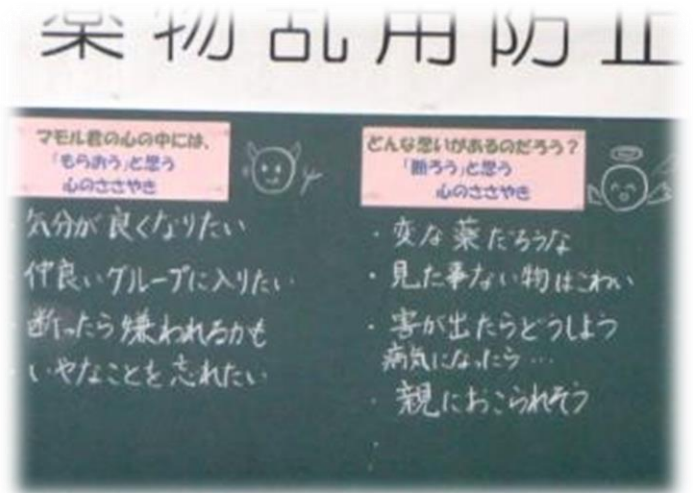 薬物乱用防止
マモル君の心の中には、
「もらおう」と思う
心のささやき
・気分が良くなりたい
・仲良いグループに入りたい
・断ったら嫌われるかも
・いやなことを忘れたい
どんな思いがあるのだろう？
「断ろう」と思う
心のささやき
・変な薬だろうな
・見た事ない物はこわい
・害が出たらどうしよう
病気になったら…
・親におこられそう
・